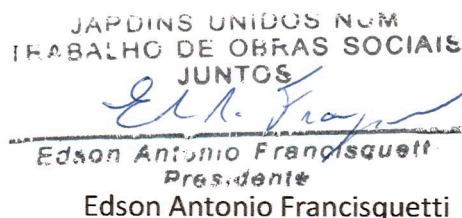 JARDINS UNIDOS NUM
TRABALHO DE OBRAS SOCIAIS
JUNTOS
Edson Antonio Francisquetti
Presidente
Edson Antonio Francisquetti